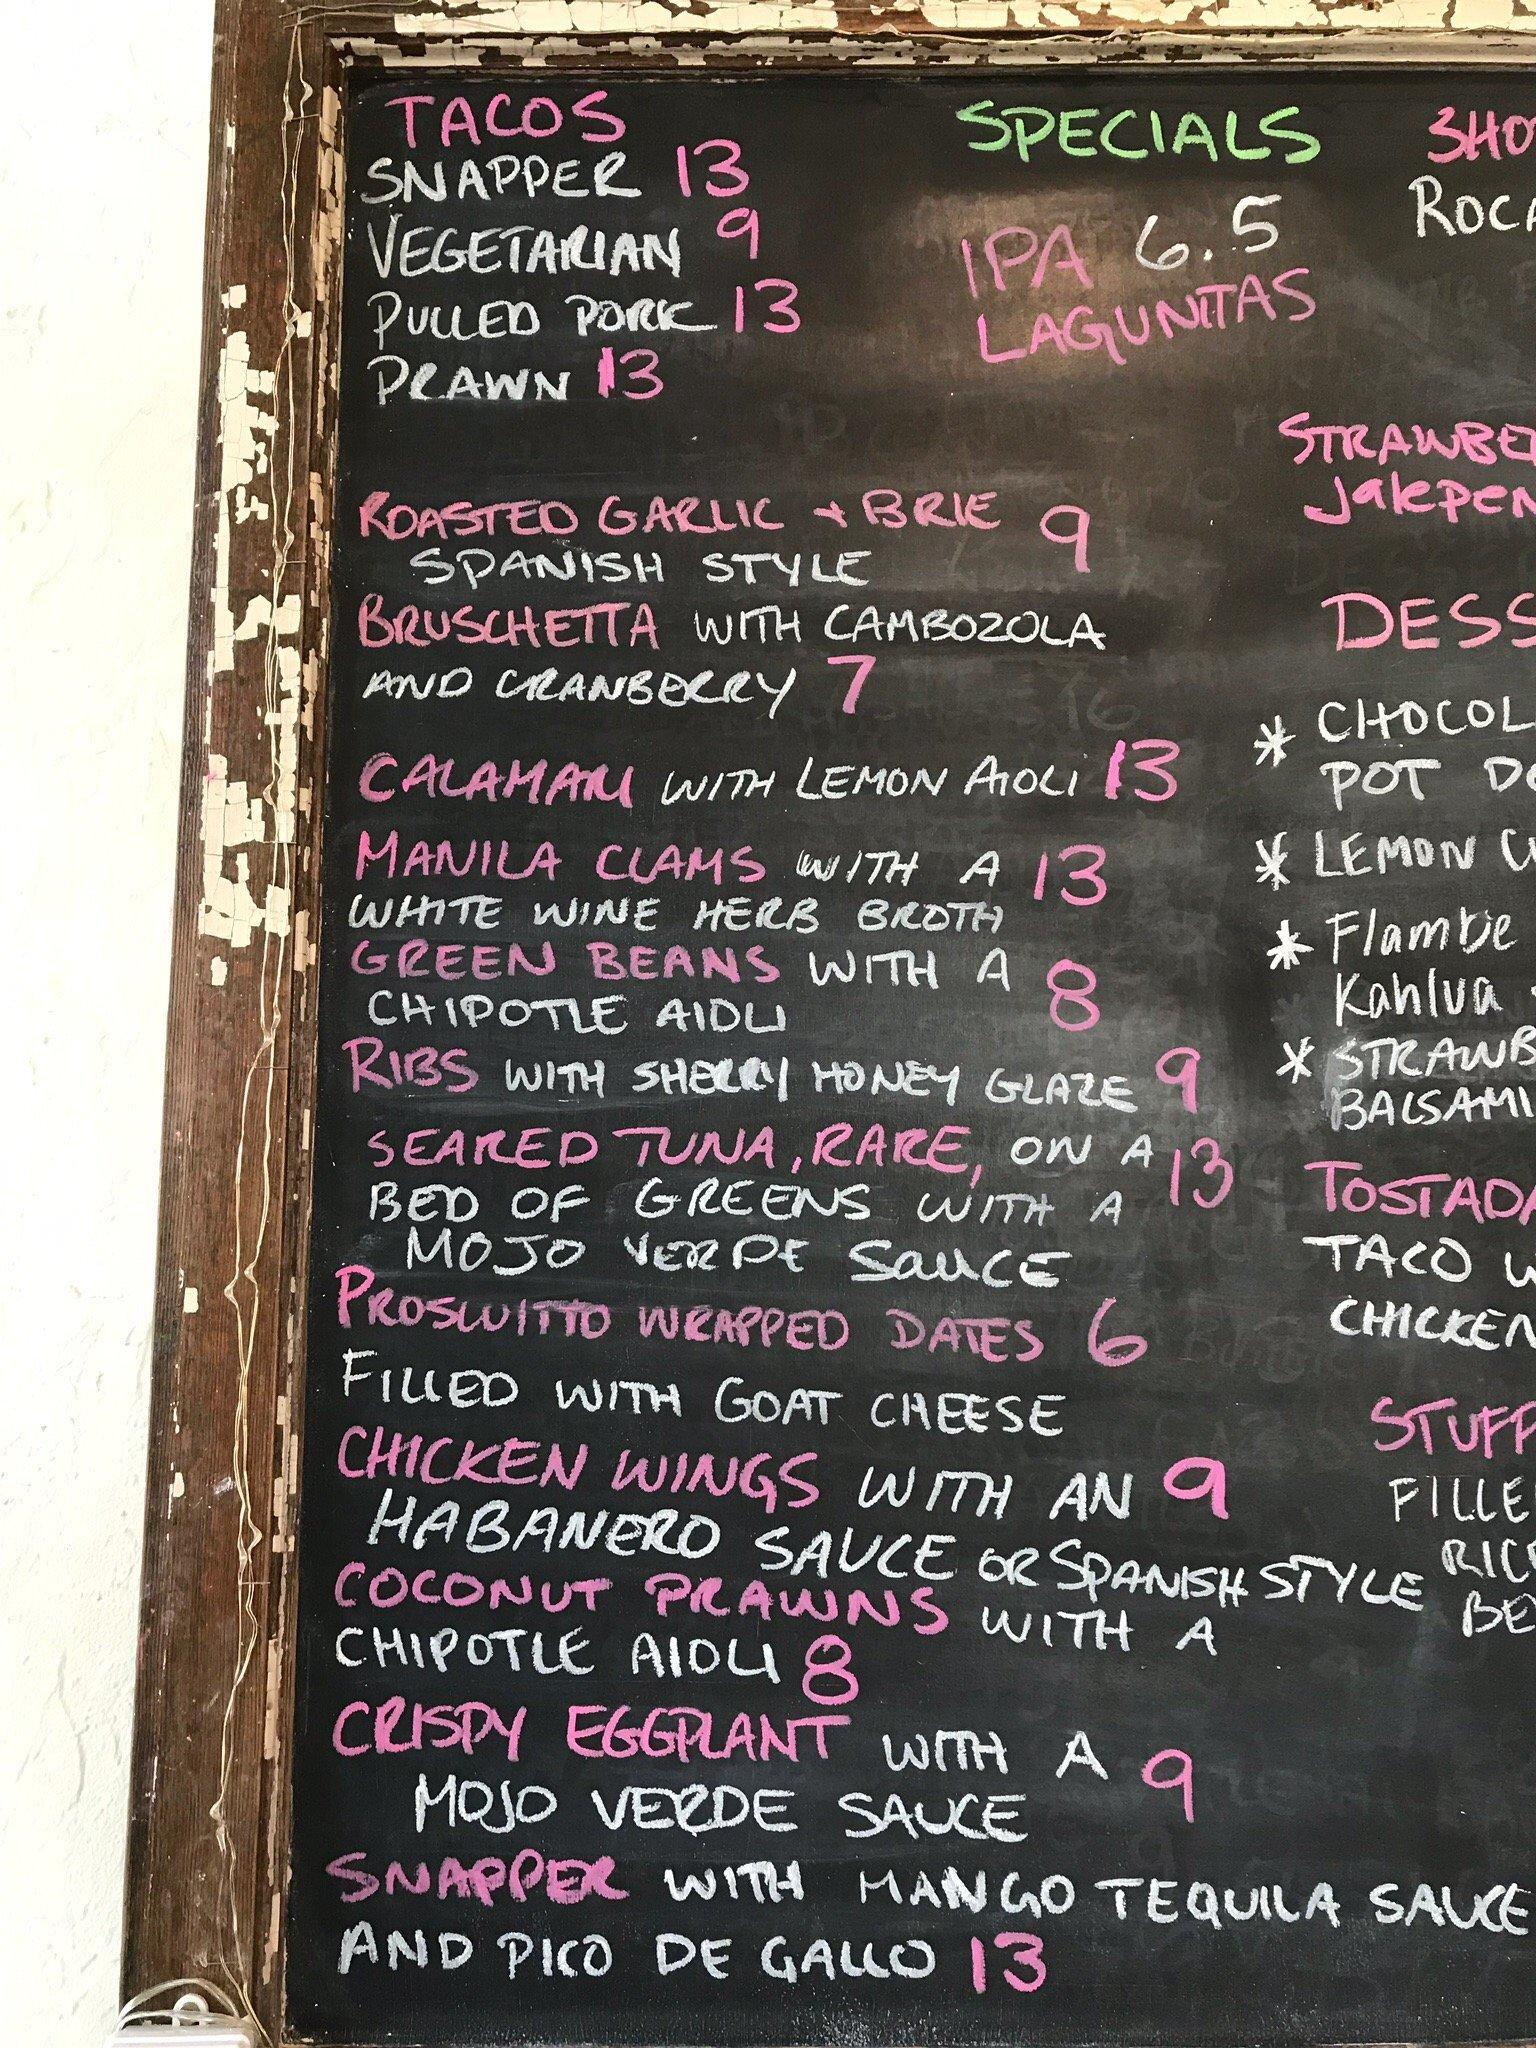 TACOS
SNAPPER 13
VEGETARIAN 9
PULLED PORK 13
PRAWN 13
ROASTED GARLIC + BRIE 9
SPANISH STYLE
BRUSCHETTA WITH CAMBOZOLA
AND CRANBERRY 7
CALAMARI WITH LEMON AIOLI 13
MANILA CLAMS WITH A 13
WHITE WINE HERB BROTH
GREEN BEANS WITH A 8
CHIPOTLE AIOLI
RIBS WITH SHERRY HONEY GLAZE 9
SEARED TUNA, RARE, ON A 13
BED OF GREENS WITH A
MOJO VERDE SAUCE
PROSCUITTO WRAPPED DATES 6
FILLED WITH GOAT CHEESE
CHICKEN WINGS WITH AN 9
HABANERO SAUCE OR SPANISH STYLE
COCONUT PRAWNS WITH A
CHIPOTLE AIOLI 8
CRISPY EGGPLANT WITH A 9
MOJO VERDE SAUCE
SNAPPER WITH MANGO TEQUILA SAUCE
AND PICO DE GALLO 13
SPECIALS
IPA 6.5
LAGUNITAS
DESS
* CHOCOL
POT
* LEMON
* Flambe
Kahlua
* STRAWB
BALSAMI
TOSTADA
TACO
CHICKEN
STUFF
FILLE
RICE
BE